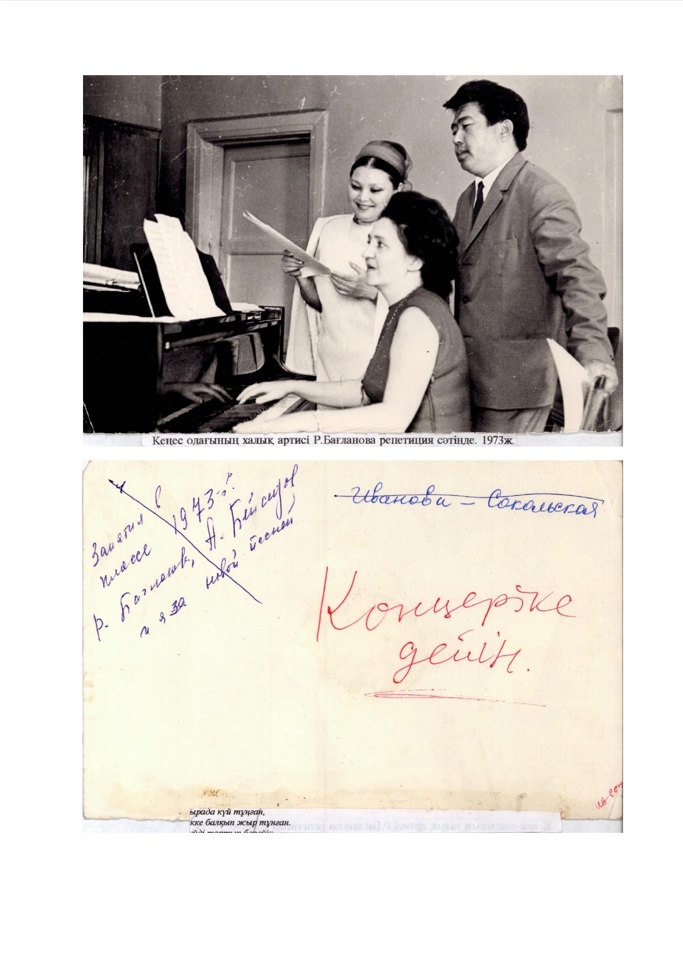 Кеңес одағының халық артисі Р.Бағланова репетиция сәтінде. 1973ж.
Занятия в
классе 1973 г.
Р. Багланов, А. Бейсеуов
и я за новой песней
Иванова – Сокольская
Концертке
дейін.
ырада күй тұнған,
кке балқып жыр тұнған.